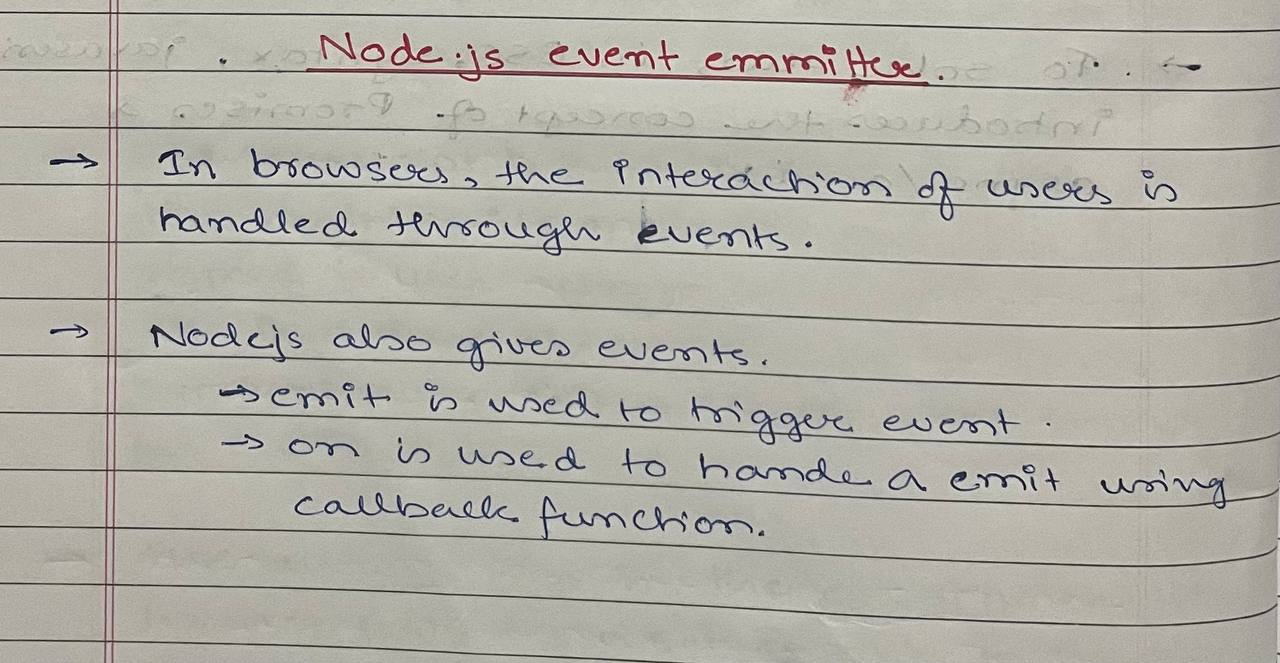 Node.js event emmitter.
→ In browsers, the interaction of users is
handled through events.
→ Nodejs also gives events.
→ emit is used to trigger event.
→ on is used to hande a emit using
callback function.